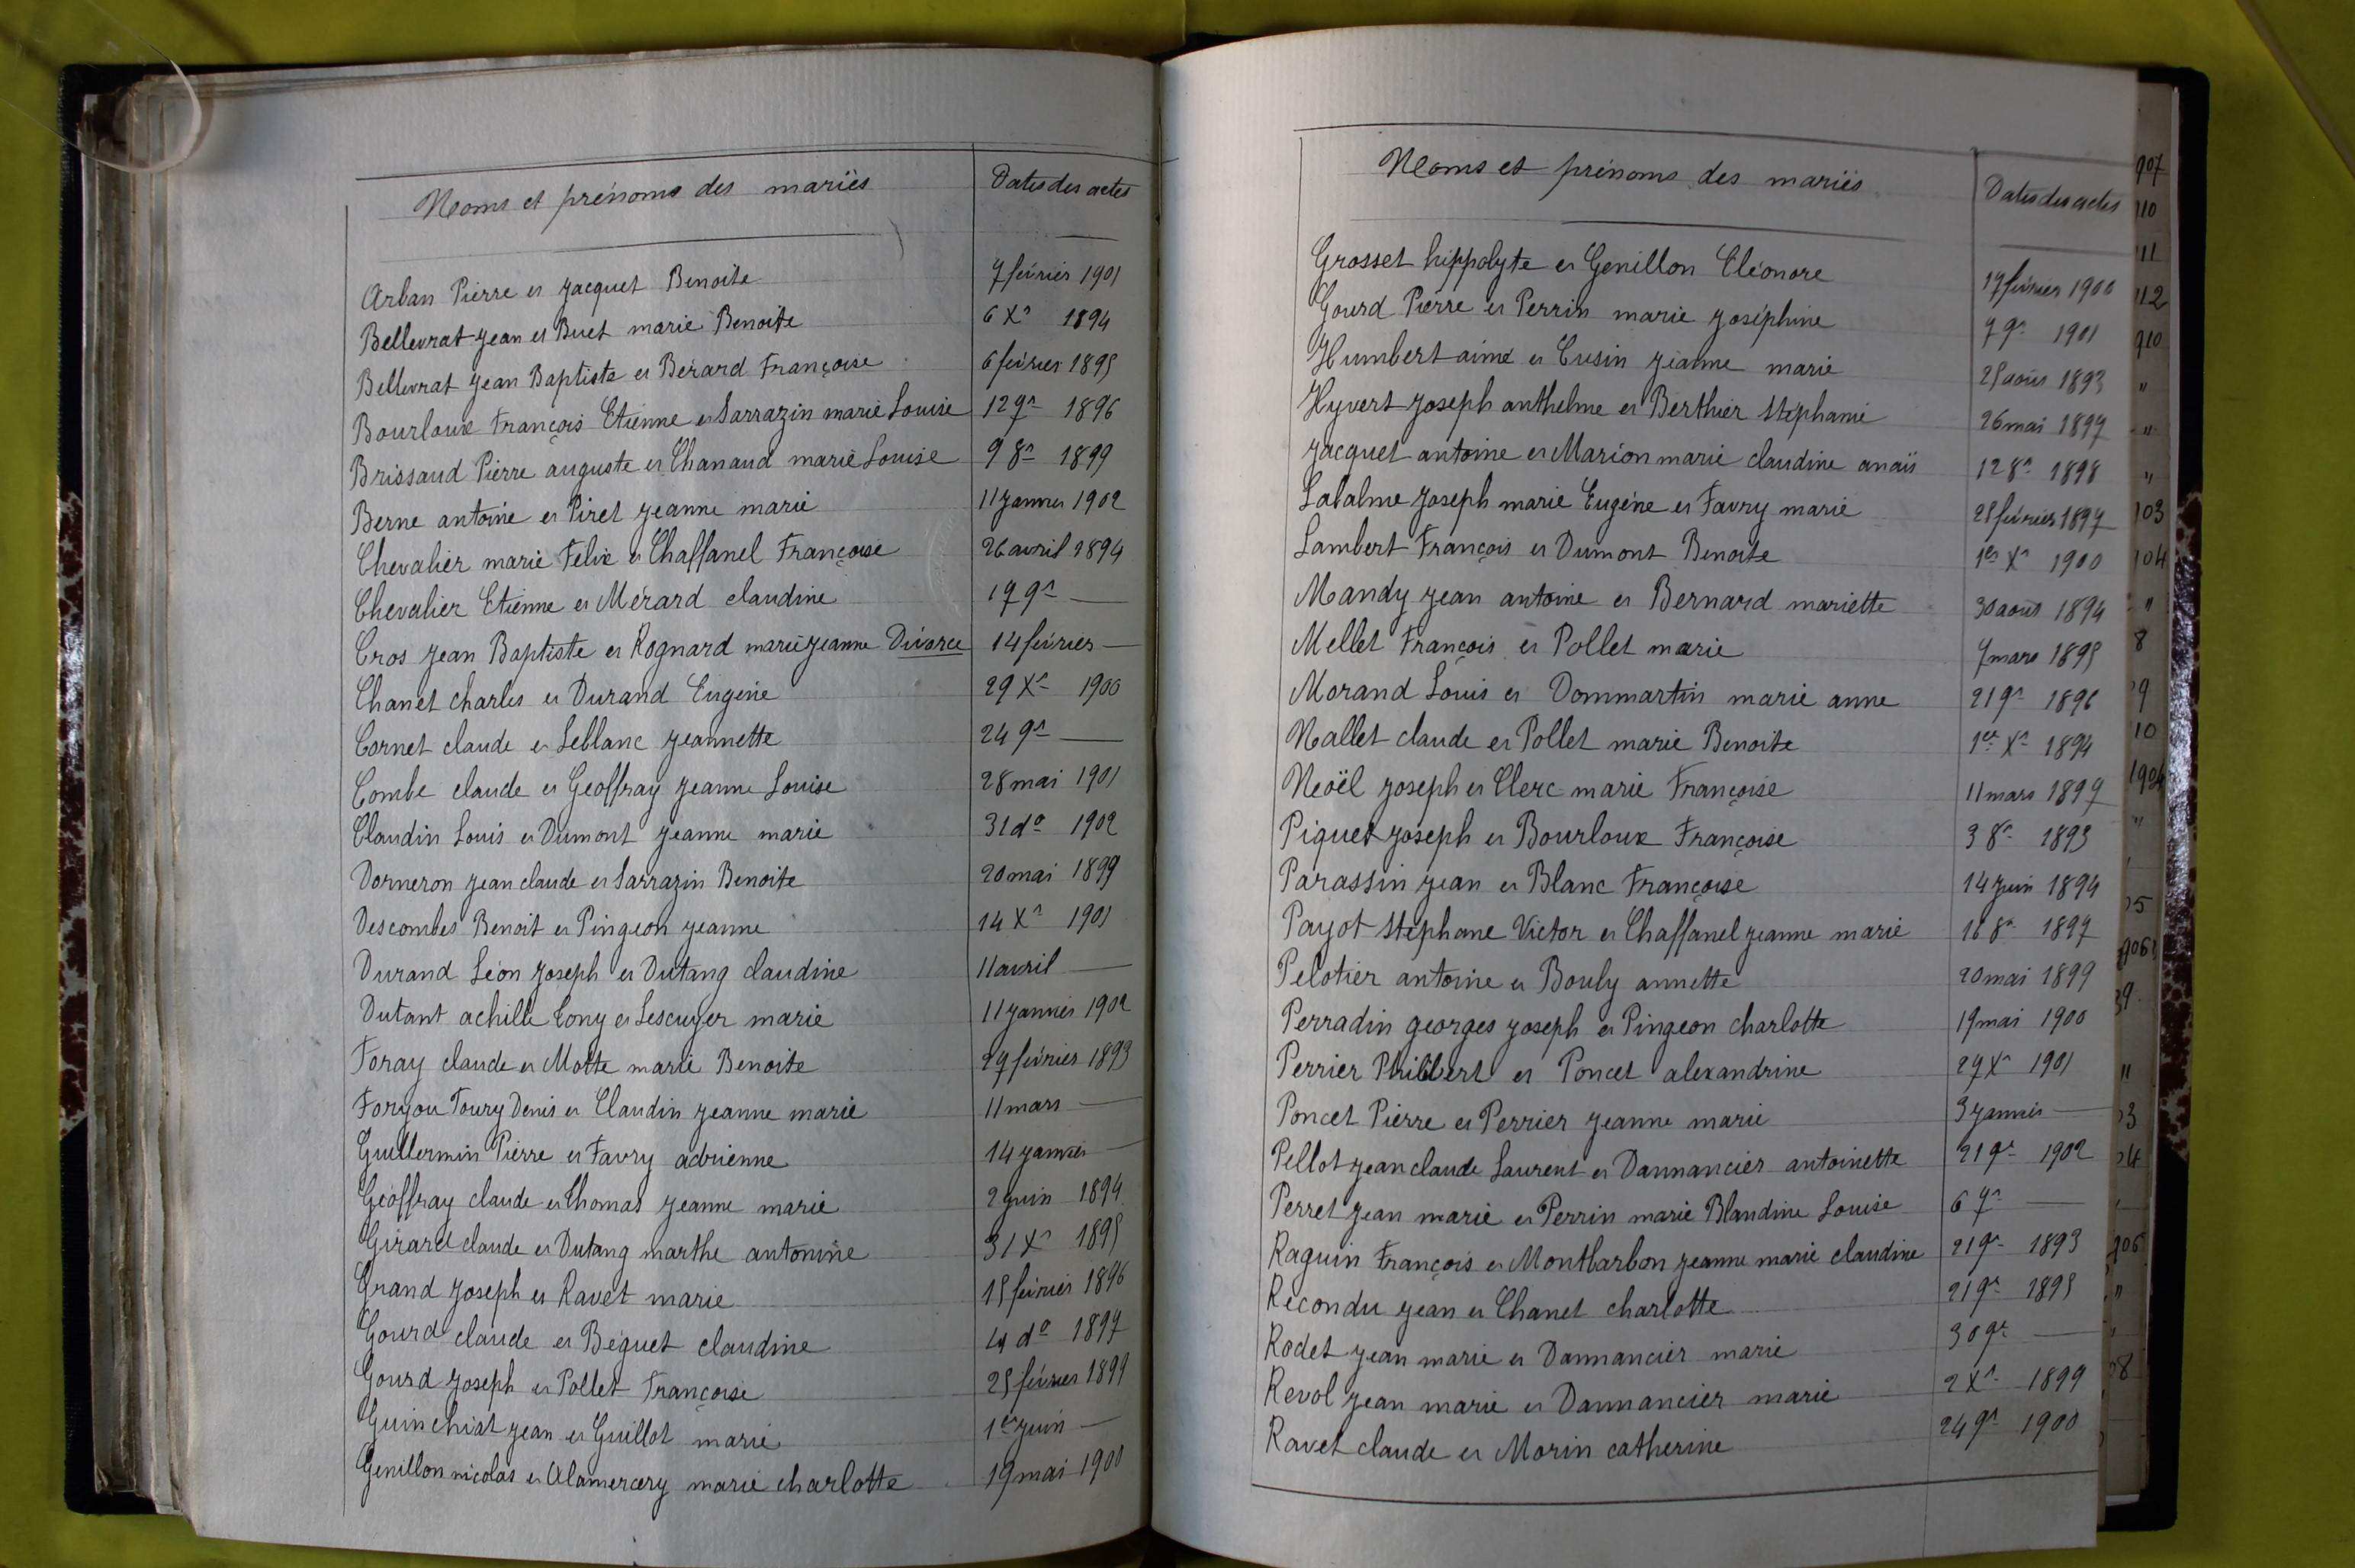 Noms et prénoms des mariés Dates des actes
Arban Pierre et Jacquet Benoite 7 février 1901
Bellevrat Jean et Buet marie Benoite 6 Xre 1894
Bellevrat Jean Baptiste et Bérard Françoise 6 février 1895
Bourloux François Etienne et Sarrazin marie Louise 12 9re 1896
Brissaud Pierre auguste et Chanaud marie Louise 9 8re 1899
Berne antoine et Piret Jeanne marie 11 Janvier 1902
Chevalier marie Felix et Chaffanel Françoise 26 avril 1894
Chevalier Etienne et Mérard claudine 17 9re —
Cros Jean Baptiste et Rognard marie Jeanne Divorce 14 février —
Chanet charles et Durand Eugénie 29 Xre 1900
Cornet claude et Leblanc Jeannette 24 9re —
Combe claude et Geoffray Jeanne Louise 28 mai 1901
Claudin Louis et Dumont Jeanne marie 31 do 1902
Dorneron Jean claude et Sarrazin Benoite 20 mai 1899
Descombes Benoit et Pingeon Jeanne 14 Xre 1901
Durand Léon Joseph et Dutang claudine 11 avril —
Dutant achille Tony et Lescuyer marie 11 Janvier 1902
Foray claude et Motte marie Benoite février 1893
Foryou Toury Denis et Claudin Jeanne marie 11 mars —
Guillermin Pierre et Favry adrienne 14 Janvier —
Geoffray claude et Thomas Jeanne marie 2 Juin 1894
Girard claude et Dutang marthe antonine 31 Xre 1895
Grand Joseph et Ravet marie 15 février 1896
Gourd claude et Béguet claudine do 1897
Gourd Joseph et Pollet Françoise 25 février 1899
Guinchist Jean et Guillot marie 1er Juin —
Genillon nicolas et Alamercery marie charlotte 19 mai 1900
Noms et prénoms des mariés Dates des actes
Grosset hippolyte et Genillon Eléonore février 1900
Gourd Pierre et Perrin marie Joséphine 7 9re 1901
Humbert aimé et Cusin Jeanne marie 25 août 1893
Hyvert Joseph anthelme et Berthier Stéphanie 26 mai 1897
Jacquet antoine et Marion marie claudine anaïs 12 8re 1898
Labalme Joseph marie Eugène et Favry marie février 1897
Lambert François et Dumont Benoite 1er Xre 1900
Mandy Jean antoine et Bernard mariette 30 août 1894
Mellet François et Pollet marie 7 mars 1895
Morand Louis et Dommartin marie anne 21 9re 1896
Nallet claude et Pollet marie Benoite 1er Xre 1894
Noël Joseph et Clerc marie Françoise 11 mars 1897
Piquet Joseph et Bourloux Françoise 3 8re 1893
Parassin Jean et Blanc Françoise 14 Juin 1894
Payot Stéphane Victor et Chaffanel Jeanne marie 16 8re 1897
Pelotier antoine et Bouly annette 20 mai 1899
Perradin georges Joseph et Pingeon charlotte 19 mai 1900
Perrier Philibert et Poncet alexandrine 29 Xre 1901
Poncet Pierre et Perrier Jeanne marie 3 Janvier —
Pellot Jean claude Laurent et Dannancier antoinette 21 9re 1902
Perret Jean marie et Perrin marie Blandine Louise 6 7re —
Raguin François et Montbarbon Jeanne marie claudine 21 9re 1893
Recondu Jean et Chanel charlotte 21 9re 1895
Rodet Jean marie et Dannancier marie 30 9re —
Revol Jean marie et Dannancier marie 2 Xre 1899
Ravet claude et Morin catherine 24 9re 1900